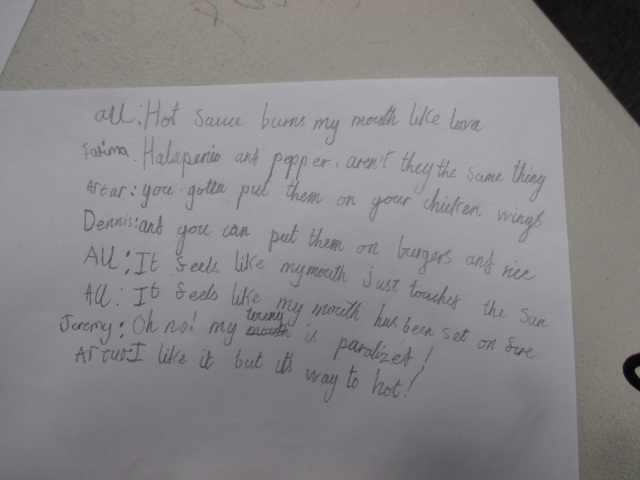 All: Hot Sauce burns my mouth like lava
Fatima. Halapenio and pepper. aren't they the same thing
Artar: you gotta put them on your chicken wings
Dennis: and you can put them on burgers and rice
All: It feels like my mouth just touches the Sun
All: It feels like my mouth has been set on fire
Jeremy: Oh no! my toung is paralized!
Artur: I like it but it's way to hot!